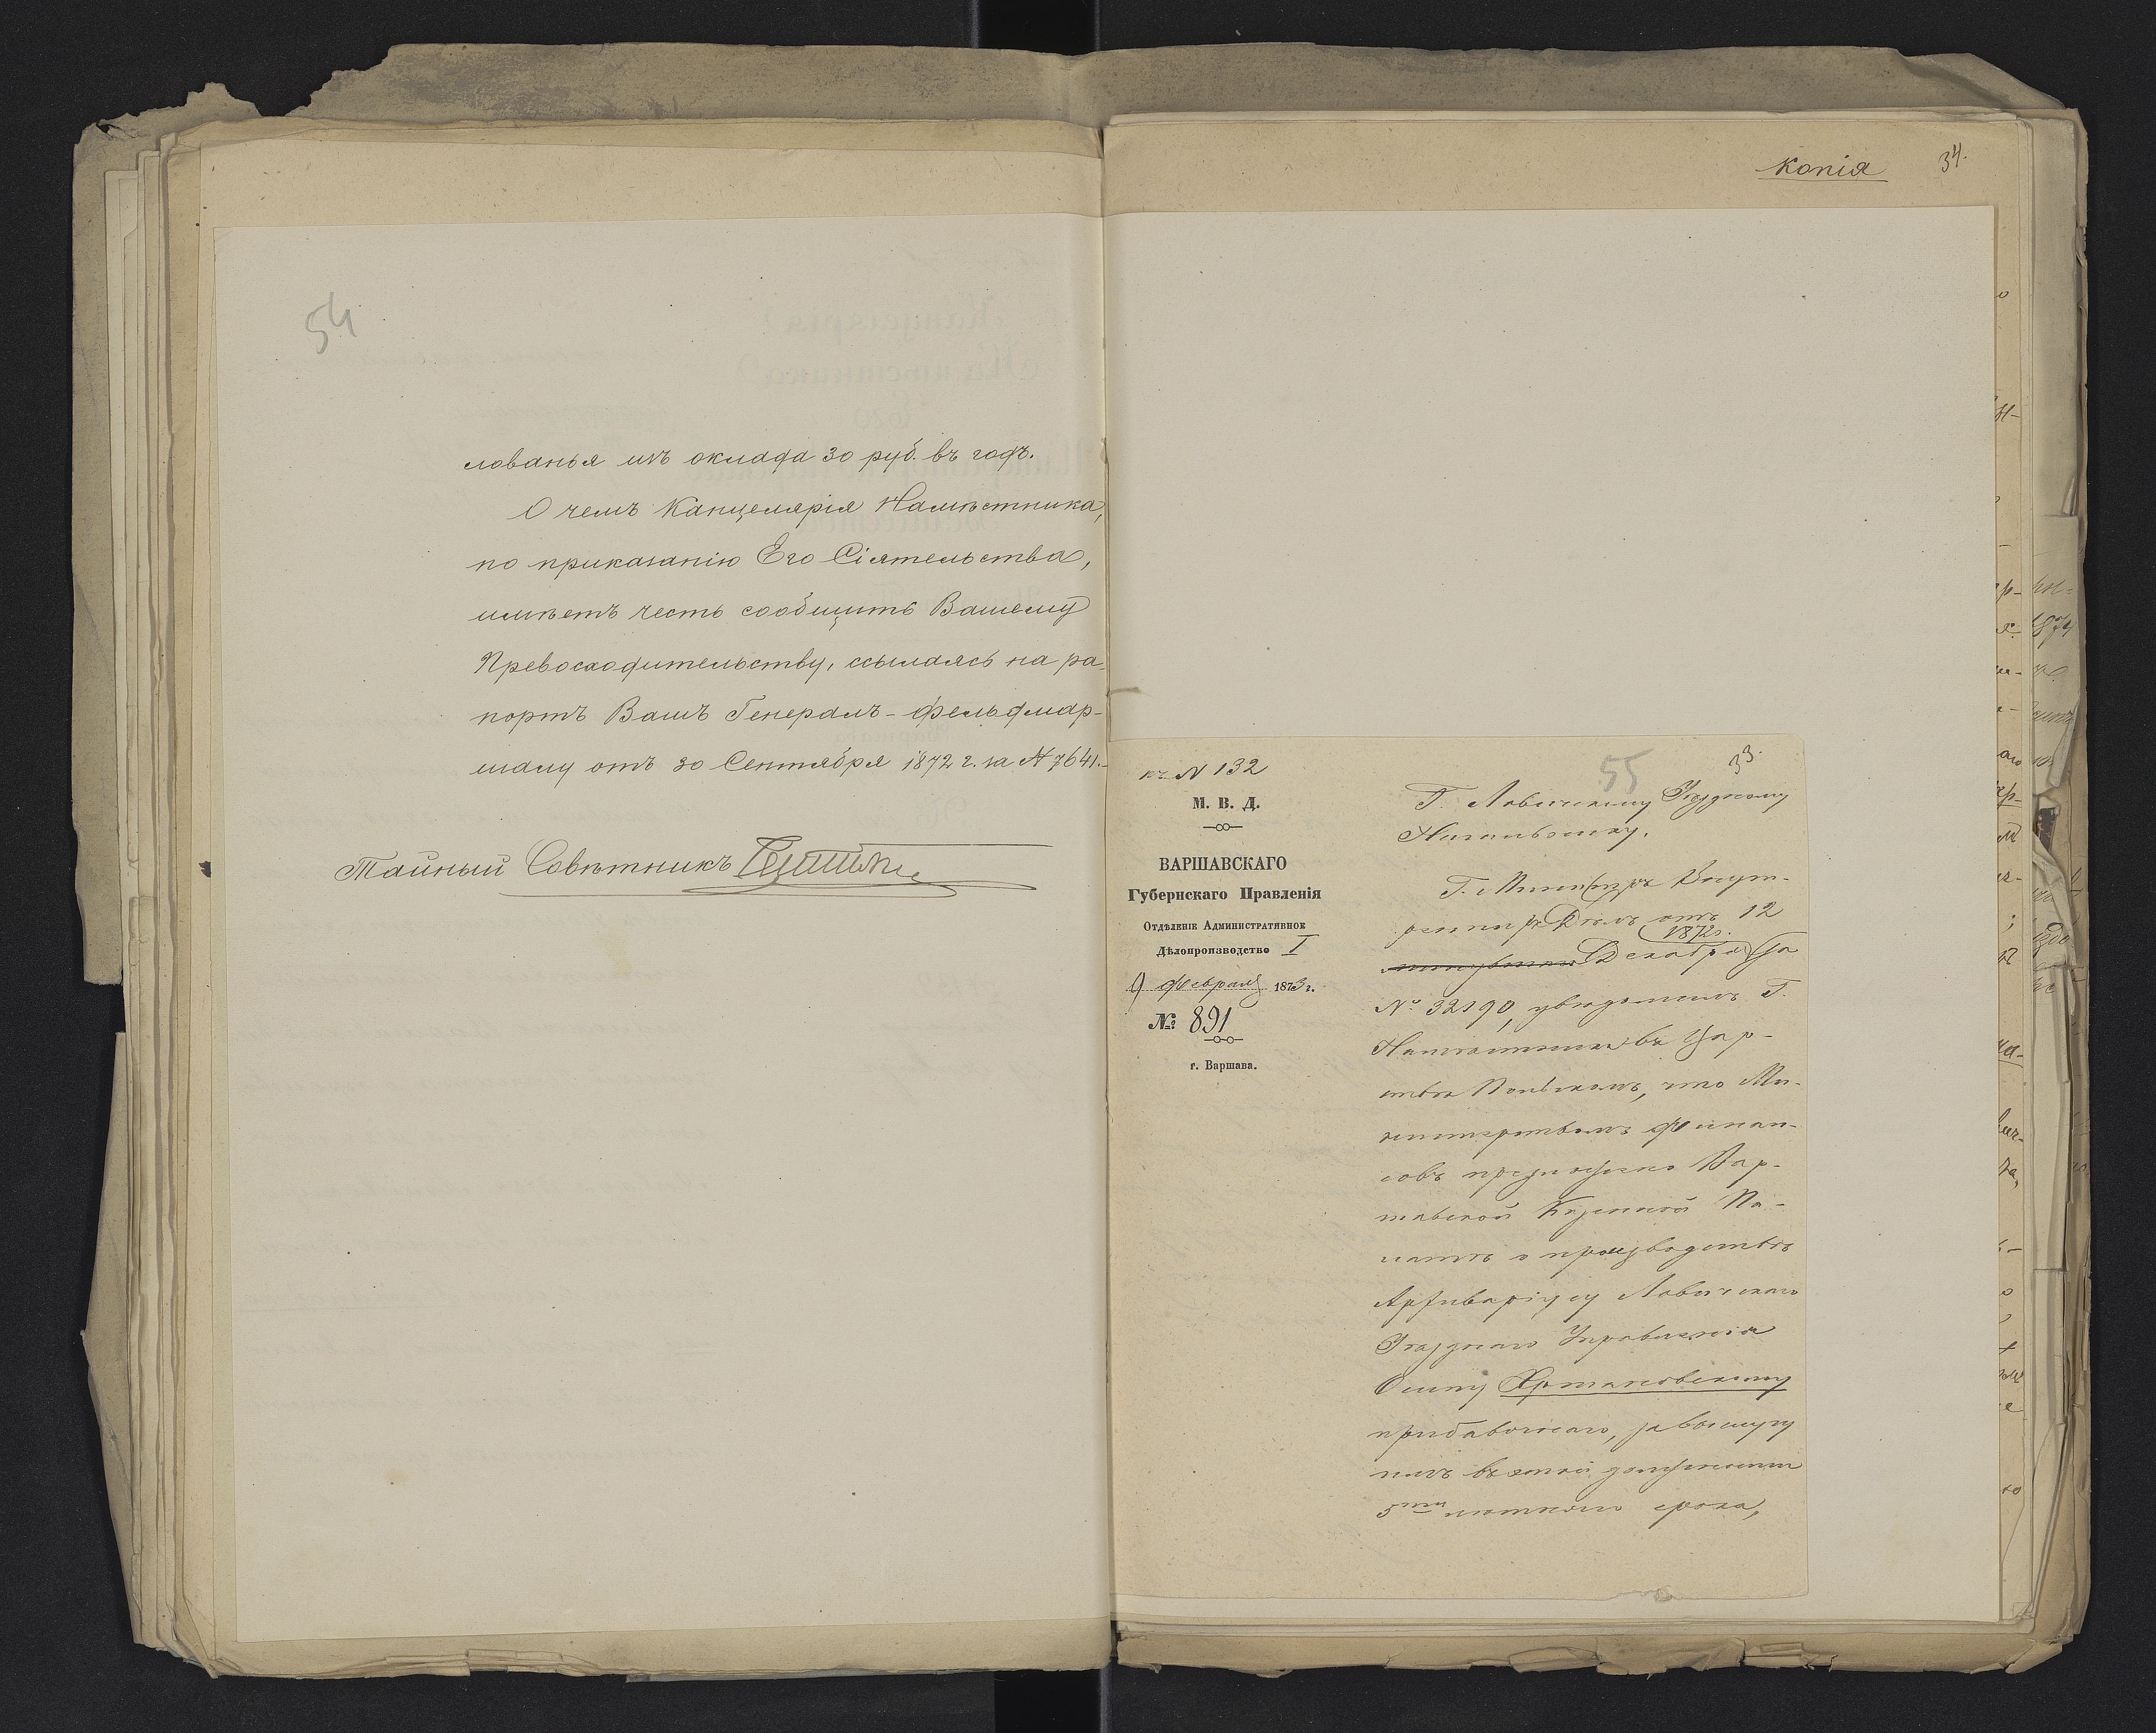 54
лованья изъ оклада 30 руб. въ годъ.
О чемъ Канцелярія Намѣстника,
по приказанію Его Сіятельства,
имѣетъ честь сообщить Вашему
Превосходительству, ссылаясь на ра-
портъ Вашъ Генералъ-Фельдмар-
шалу отъ 30 Сентября 1872 г. за № 7641.
Тайный Совѣтникъ
Копія
34.
къ № 132
М. В. Д.
ВАРШАВСКАГО
Губернскаго Правленія
Отдѣленіе Административное
Дѣлопроизводство I
9 Февраля 1873 г.
№ 891
г. Варшава.
55
33.
Г. Ловичскому Уѣздному
Начальнику.
Г. Министръ Внут-
реннихъ Дѣлъ отъ 12
1872 г.
Декабря за
№ 32190, увѣдомилъ Г.
Намѣстника въ Цар-
ствѣ Польскомъ, что Ми-
нистерствомъ Финан-
совъ предложено Вар-
шавской Казенной Па-
латѣ о производствѣ
Архиваріусу Ловичскаго
Уѣзднаго Управленія
Осипу Хртановскому
прибавочнаго, за выслугу
имъ въ этой должности
5ти лѣтняго срока,